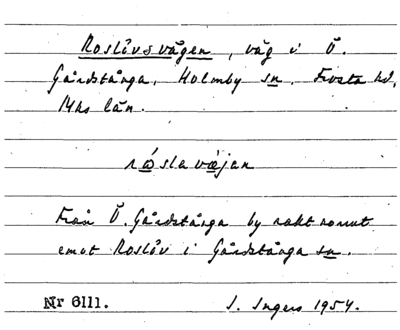 Roslövsvägen, väg i Ö.
Gårdstånga, Holmby sn. Frosta hd,
Mhs län.
råslavæjan
Från Ö. Gårdstånga by rakt norrut
emot Roslöv i Gårdstånga sn.
Nr 6111. I. Ingers 1954.